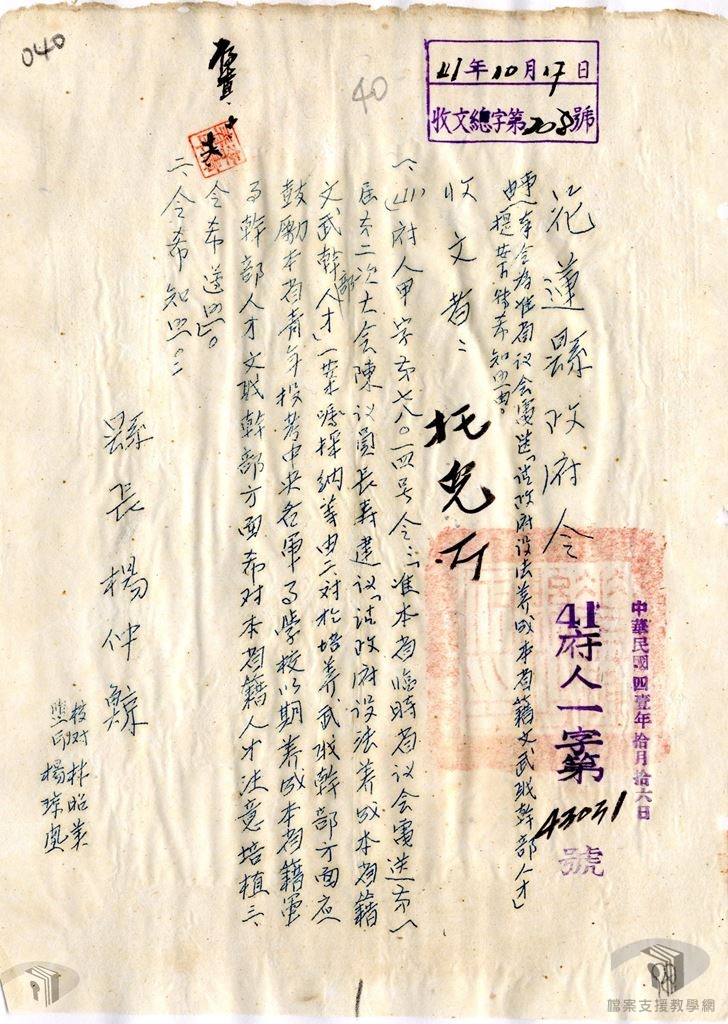 040
40
41年10月17日
收文總字第208號
中華民國四壹年拾月拾六日
41府人一字第43031號
花蓮縣政府令
事由:奉令為准省议会電送「請政府设法养成本省籍文武职幹部人才」
提案特希知照由。
收文者:
一、(41)府人甲字第七八〇一四号令:「一、准本省臨時省议会電送第一
屆第二次大会陳议員長寿建议「請政府设法养成本省籍
文武幹部人才」一案囑採纳等由二、对於培养武职幹部方面应
鼓勵本省青年投考中央各軍事學校以期养成本省籍軍
事幹部人才文职幹部方面希对本省籍人才注意培植三、
令希遵照」。
二、令希知照。
縣長楊仲鯨
校对林昭美
監印楊琼
檔案支援教學網